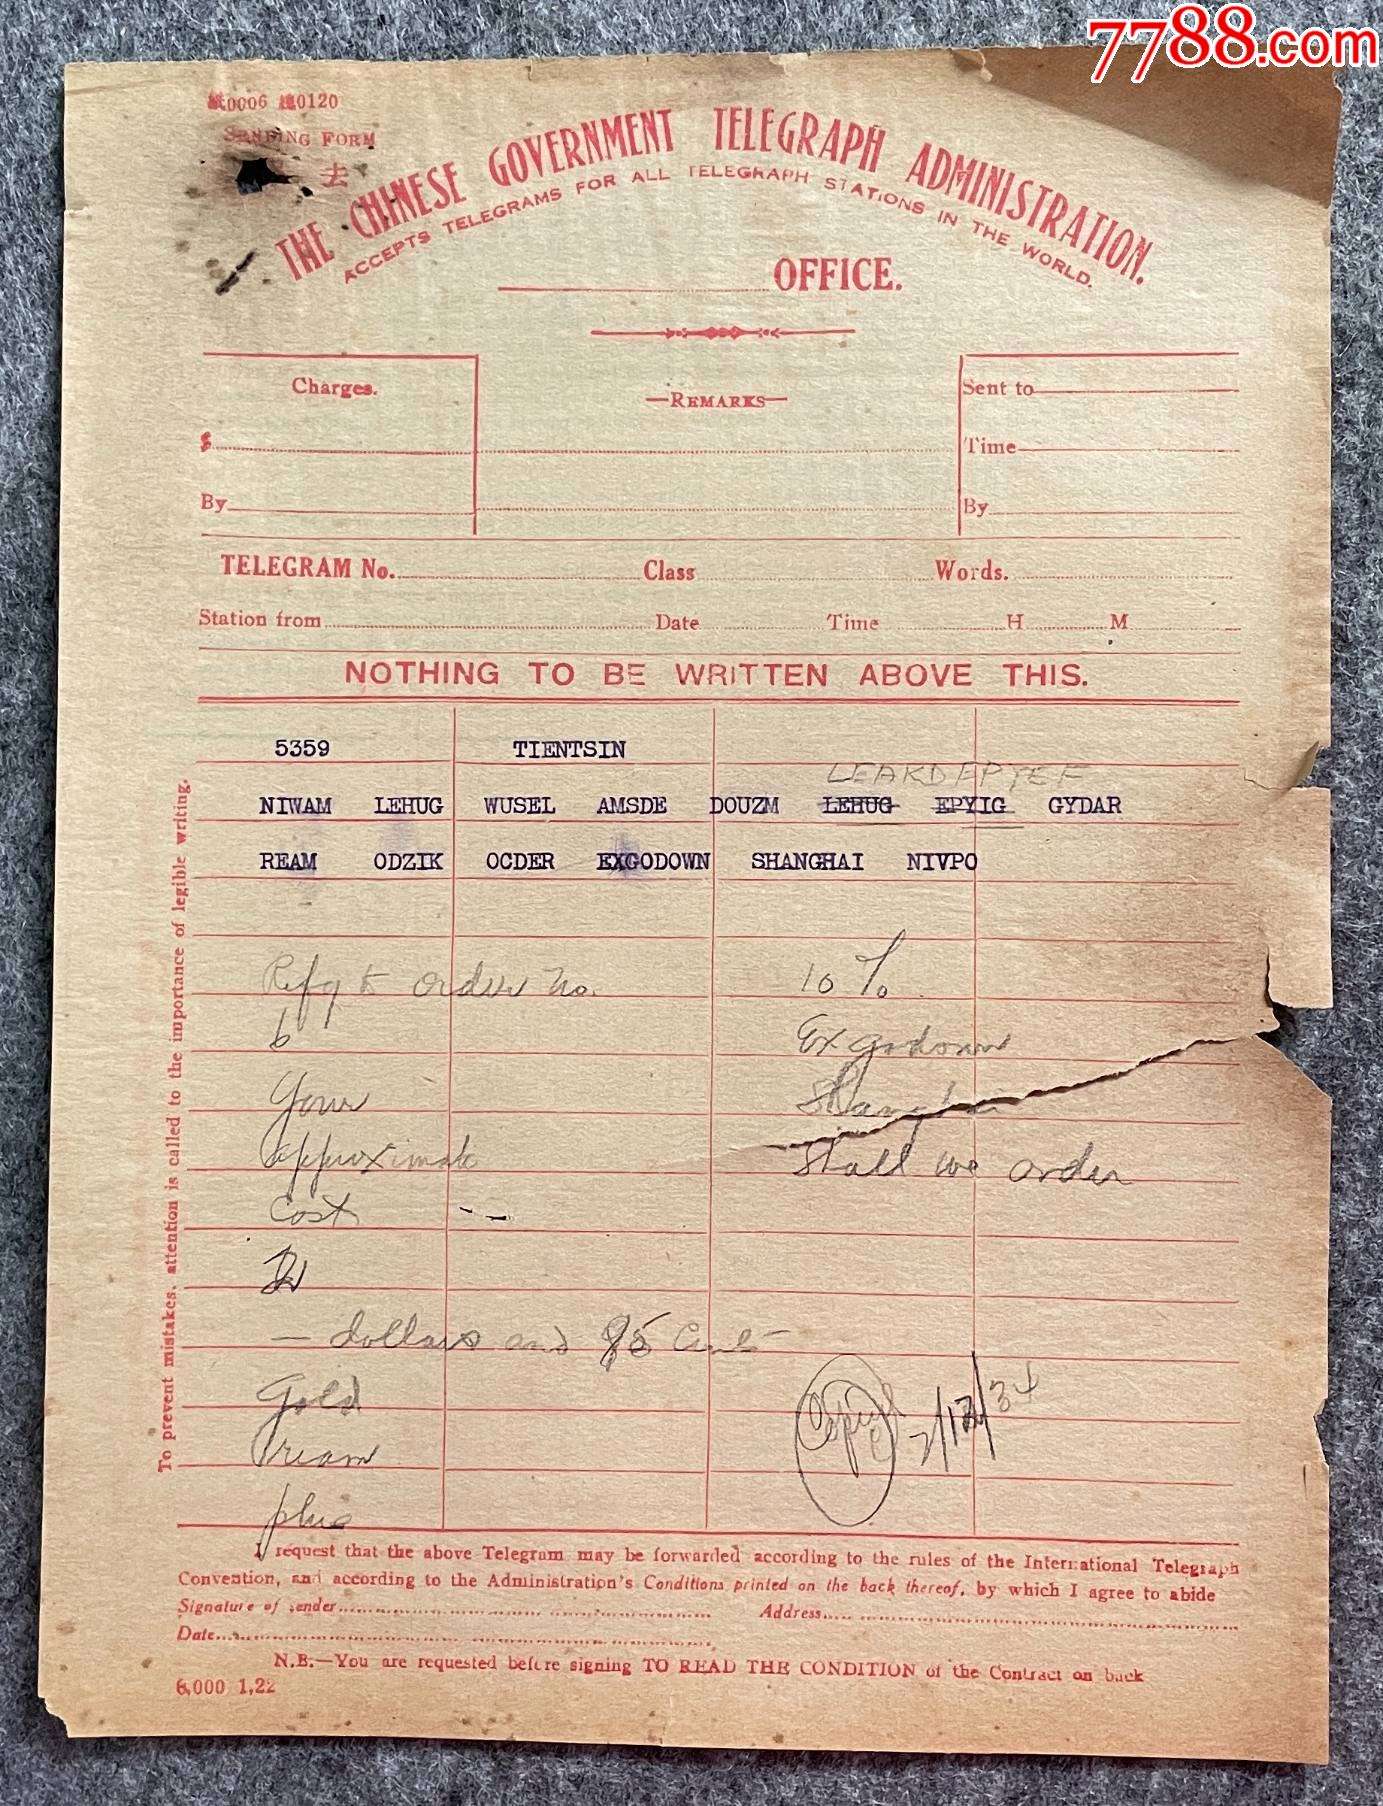 7788.com
紙0006 總0120
SENDING FORM
去
THE CHINESE GOVERNMENT TELEGRAPH ADMINISTRATION.
ACCEPTS TELEGRAMS FOR ALL TELEGRAPH STATIONS IN THE WORLD.
OFFICE.
Charges.
$
By
REMARKS
Sent to
Time
By
TELEGRAM No. Class Words.
Station from Date Time H M
NOTHING TO BE WRITTEN ABOVE THIS.
5359 TIENTSIN
LEAKD EPYEF
NIWAM LEHUG WUSEL AMSDE DOUZM LEHUG EPYIG GYDAR
REAM ODZIK OCDER EXGODOWN SHANGHAI NIVPO
To prevent mistakes, attention is called to the importance of legible writing.
Refg to order No.
6
Your
approximate
Cost --
— dollars and 85 Cent
Gold
Ream
plus
10 %
Ex godown
Shanghai
Shall we order
7/12/34
I request that the above Telegram may be forwarded according to the rules of the International Telegraph
Convention, and according to the Administration's Conditions printed on the back thereof, by which I agree to abide
Signature of sender Address
Date
N.B.—You are requested before signing TO READ THE CONDITION of the Contract on back
6,000 1,22